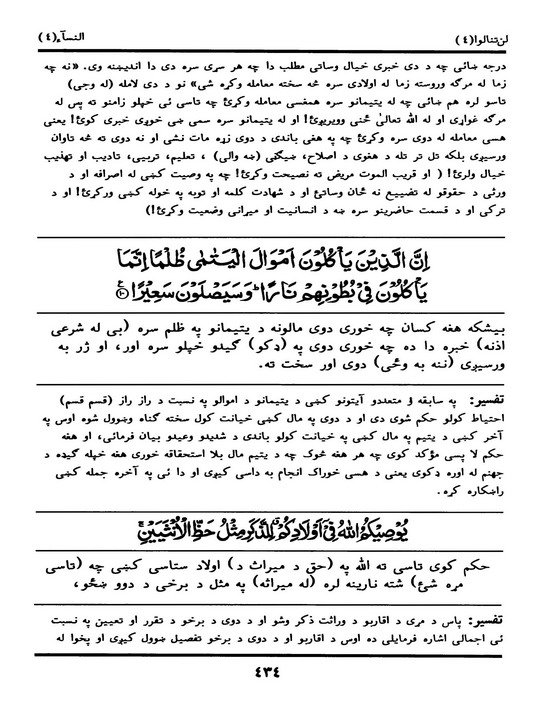 لن تنالوا(٤) النسآء(٤)
درجه ځائی چه د دی خبری خیال وساتی مطلب دا چه هر سړی سره دی دا اندیښنه وی. «نه چه
زما له مرگه وروسته زما له اولادی سره څه سخته معامله وکړه شی» نو د دی لامله (له وجی)
تاسو لره هم ښائی چه له یتیمانو سره همغسی معامله وکړئ چه تاسی ئی خپلو زامنو ته پس له
مرگه غواړی او له الله تعالیٰ څنی وویریږئ! او له یتیمانو سره سمی ښی خوږی خبری کوئ! یعنی
هسی معامله له دوی سره وکړئ چه په هغی باندی د دوی زړه مات نشی او نه دوی ته څه تاوان
ورسیږی بلکه تل تر تله د هغوی د اصلاح، ښیګڼی (ښه والی) ، تعلیم، تربیی، تادیب او تهذیب
خیال ولرئ! ( او قریب الموت مریض ته نصیحت وکړئ! چه په وصیت کښی له اصرافه او د
ورثی د حقوقو له تضییع نه ځان وساتئ او د شهادت کلمه او توبه په خوله کښی ورکړئ! او د
ترکی او د قسمت حاضرینو سره ښه د انسانیت او میرانی وضعیت وکړئ!)
اِنَّ الَّذِیْنَ یَاْكُلُوْنَ اَمْوَالَ الْیَتٰمٰى ظُلْمًا اِنَّمَا
یَاْكُلُوْنَ فِیْ بُطُوْنِهِمْ نَارًا ؕ وَ سَیَصْلَوْنَ سَعِیْرًا ۱۰
بیشکه هغه کسان چه خوری دوی مالونه د یتیمانو په ظلم سره (بی له شرعی
اذنه) خبره دا ده چه خوری دوی په (ډکو) گیډو خپلو سره اور، او ژر به
ورسیږی (ننه به وځی) دوی اور سخت ته.
تفسیر: په سابقه ؤ متعددو آیتونو کښی د یتیمانو د اموالو په نسبت د راز راز (قسم قسم)
احتیاط کولو حکم شوی دی او د دوی په مال کښی خیانت کول سخته گناه وښوول شوه اوس په
آخر کښی د یتیم په مال کښی په خیانت کولو باندی د شدیدو وعیدو بیان فرمائی، او هغه
حکم لا پسی مؤکد کوی چه هر هغه څوک چه د یتیم مال بلا استحقاقه خوری هغه خپله گیډه د
جهنم له اوره ډکوی یعنی د هسی خوراک انجام به داسی کیږی او دا ئی په آخره جمله کښی
راښکاره کړه.
یُوْصِیْكُمُ اللّٰهُ فِیْۤ اَوْلَادِكُمْ ۗ لِلذَّكَرِ مِثْلُ حَظِّ الْاُنْثَیَیْنِ ۚ
حکم کوی تاسی ته الله په (حق د میراث د) اولاد ستاسی کښی چه (تاسی
مړه شئ) شته نارینه لره (له میراثه) په مثل د برخی د دوو ښځو،
تفسیر: پاس د مړی د اقاربو د وراثت ذکر وشو او د دوی د برخو د تقرر او تعیین په نسبت ئی
ئی اجمالی اشاره فرمایلی ده اوس د اقاربو او د دوی د برخو تفصیل ښوول کیږی او پخوا له
٤٣٤